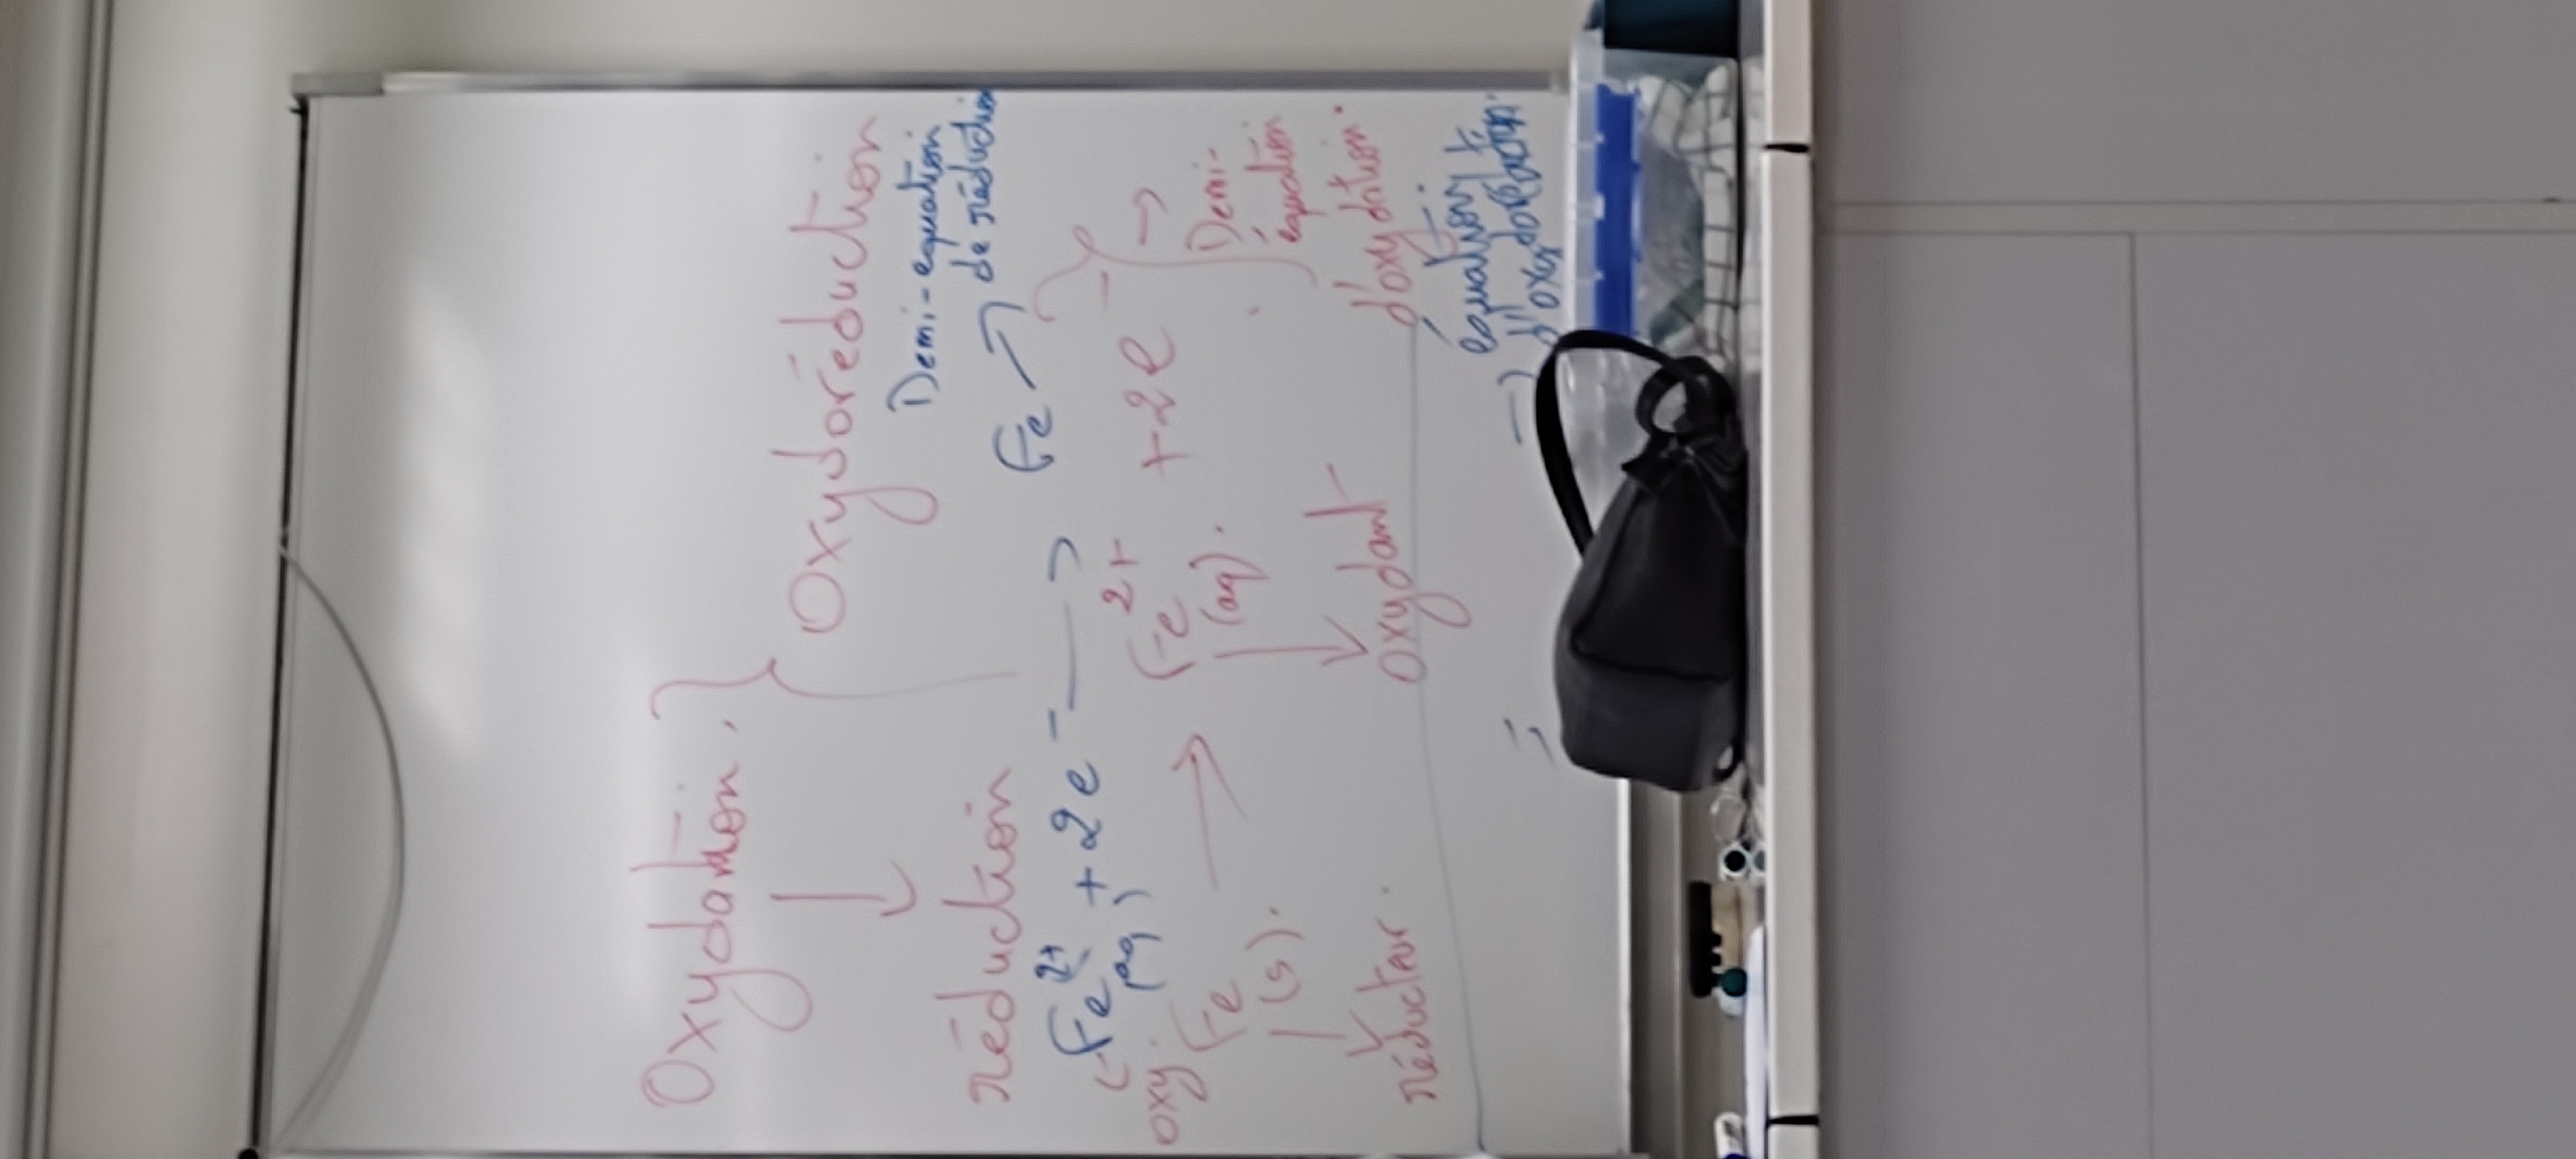 Oxydation.
Oxydoréduction
réduction
Demi-equation
de réduction
Fe²⁺(aq) + 2e⁻ → Fe
oxy.
Fe(s). → Fe²⁺(aq). + 2e⁻ →
Demi-
équation
d'oxydation.
réducteur. oxydant
équation
→ d'oxydoréduction.